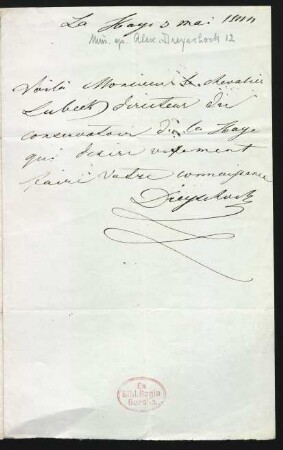 La Haye 3 mai 1844
Mus. ep. Alex. Dreyschock 12
Voilà Monsieur Le chevalier
Lubeck directeur du
conservatoir de la Haye
qui desire vivement
faire Votre connaissance
Dreyschock
Ex
Bibl. Regia
Berolin.